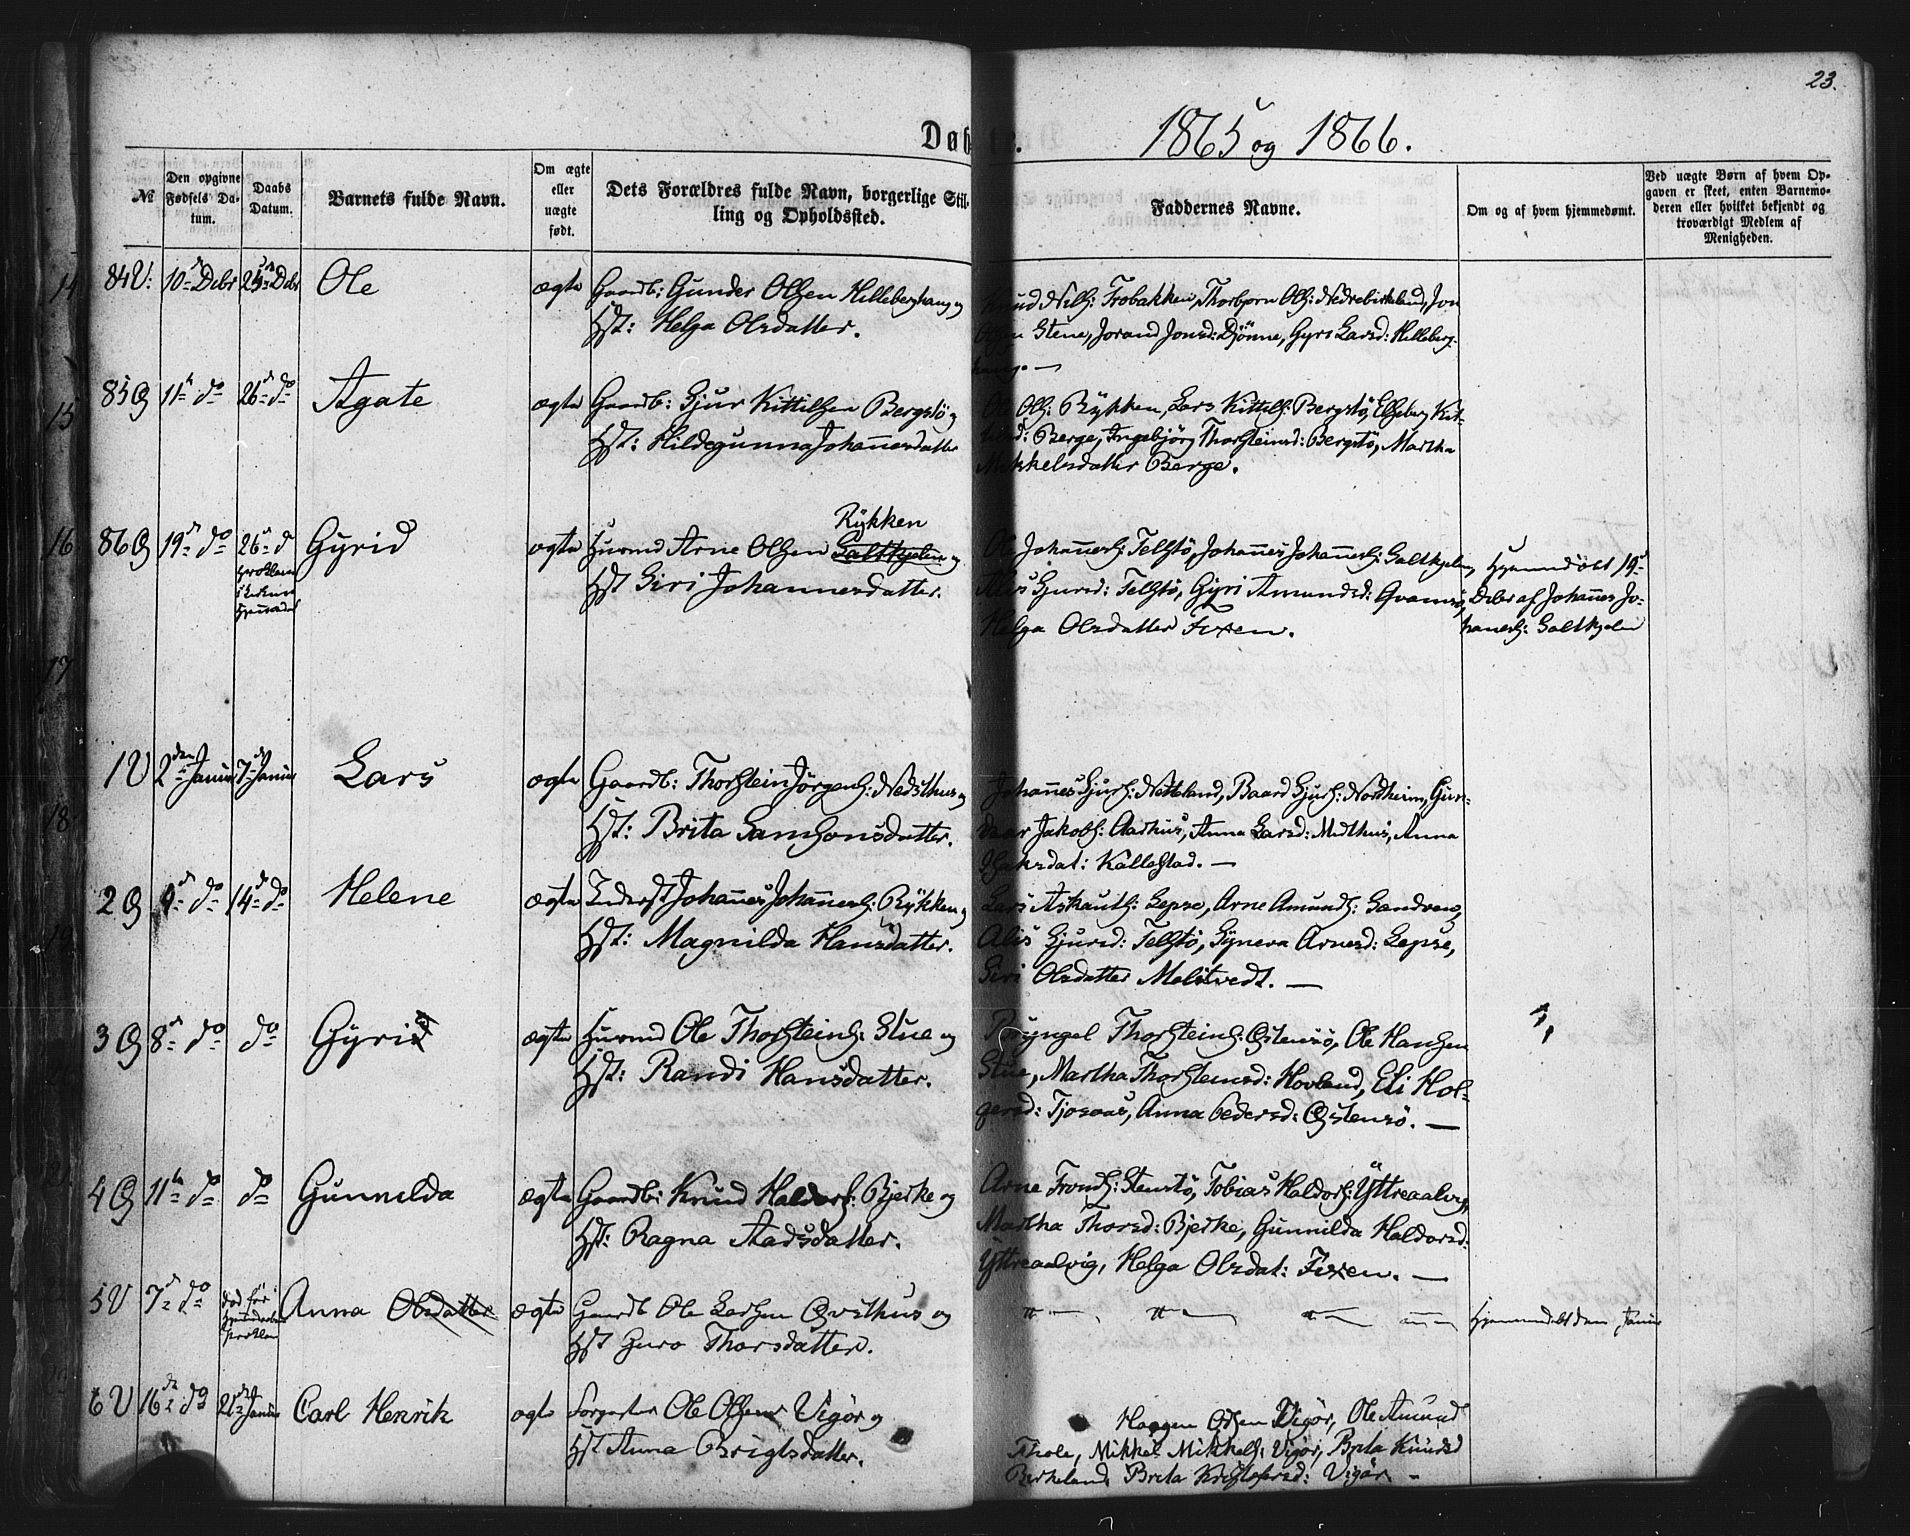 23.
Døbte. 1865 og 1866.
№
Den opgivne Fødsels Da-
tum.
Daabs
Datum.
Barnets fulde Navn.
Om ægte
eller
uægte
født.
Dets Forældres fulde Navn, borgerlige Stil-
ling og Opholdssted.
Faddernes Navne.
Om og af hvem hjemmedøbt.
Ved uægte Børn af hvem Op-
gaven er skeet, enten Barnemo-
deren eller hvilket bekjendt og
troværdigt Medlem af
Menigheden.
84 V: 10 Debr Debr Ole ægte Gaardb: Gunder Olsen Hilleberghaug og
Hst: Helga Olsdatter.
Knud Nils: Trobakken, Thorbjørn Ols: Nedrebirkeland, Jon
Olsen Stene, Jorand Jonsd: Djönne, Gyri Larsd: Hilleberg-
haug. —
85 G 11 do 26 do Agate ægte Gaardb: Sjur Kittilsen Bergstö og
Hst: Hildegunna Johannesdatter
Ole Ols: Rykken, Lars Kittils: Bergstö, Elseberg Kit-
tilsd: Berge, Ingebjörg Thorsteinsd: Bergstö, Martha
Mikkelsdatter Berge.
Rykken
86 G 19 do 26 d Gyrid ægte Huusmd Arne Olsen Saltkjelen og
Hst Siri Johannesdatter.
Ole Johannes: Telstö, Johannes Johannes: Saltkjelen,
Alis Sjursd: Telstö, Gyri Amundsd: Qvamsö,
Helga Olsdatter Fixen.
Hjemmedöbt 19
Debr af Johannes Jo-
hannes: Saltkjelen
1 V 2 den Januar 7 Januar Lars ægte Gaardb: Thorstein Jörgens: Nedsthus og
Hst: Brita Samsonsdatter.
Johannes Sjurs: Netteland, Baard Sjurs: Nordheim, Gun-
naar Jakobs: Aarhus, Anna Larsd: Midthus, Anna
Isaksdat: Kallestad. —
2 G 9 do 14 do Helene ægte Inderst Johannes Johannes: Rykken og
Hst: Magnilda Hansdatter.
Lars Askauts: Lepse, Arne Amunds: Sandven,
Alis Sjursd: Telstö, Syneva Arnesd: Lepse,
Siri Olsdatter Melstvedt. —
3 G 8 do do Gyri ægte Huusmd Ole Thorsteins: Stue og
Hst: Randi Hansdatter.
Bryngel Thorsteins: Östensö, Ole Hansen
Stue, Martha Thorsteinsd: Hovland, Eli Hol-
gersd: Tjosaas, Anna Pedersd: Östensö. —
4 G 11 do do Gunnilda ægte Gaardb: Knud Haldors: Bjerke og
Hst: Ragna Aadsdatter.
Arne Tronds: Stenstö, Tobias Haldors: Yttreaalvig,
Martha Thorsd: Bjerke, Gunnilda Haldorsd:
Yttreaalvig, Helga Olsdat: Fixen. —
5 V 7 do død før Anna Olsdatter ægte Gaardb Ole Larsen Qvithus og
Hst Guro Thorsdatter.
Hjemmedøbt den Januar
6 V 16 do 21 Januar Carl Henrik ægte Ole Olsen Vigör og
Hst Anna Brigtsdatter.
Haagen Olsen Vigör, Ole Amund
Thole, Mikkel Mikkels: Vigör, Brita Knudsd
Birkeland, Brita Kristofersd: Vigör —